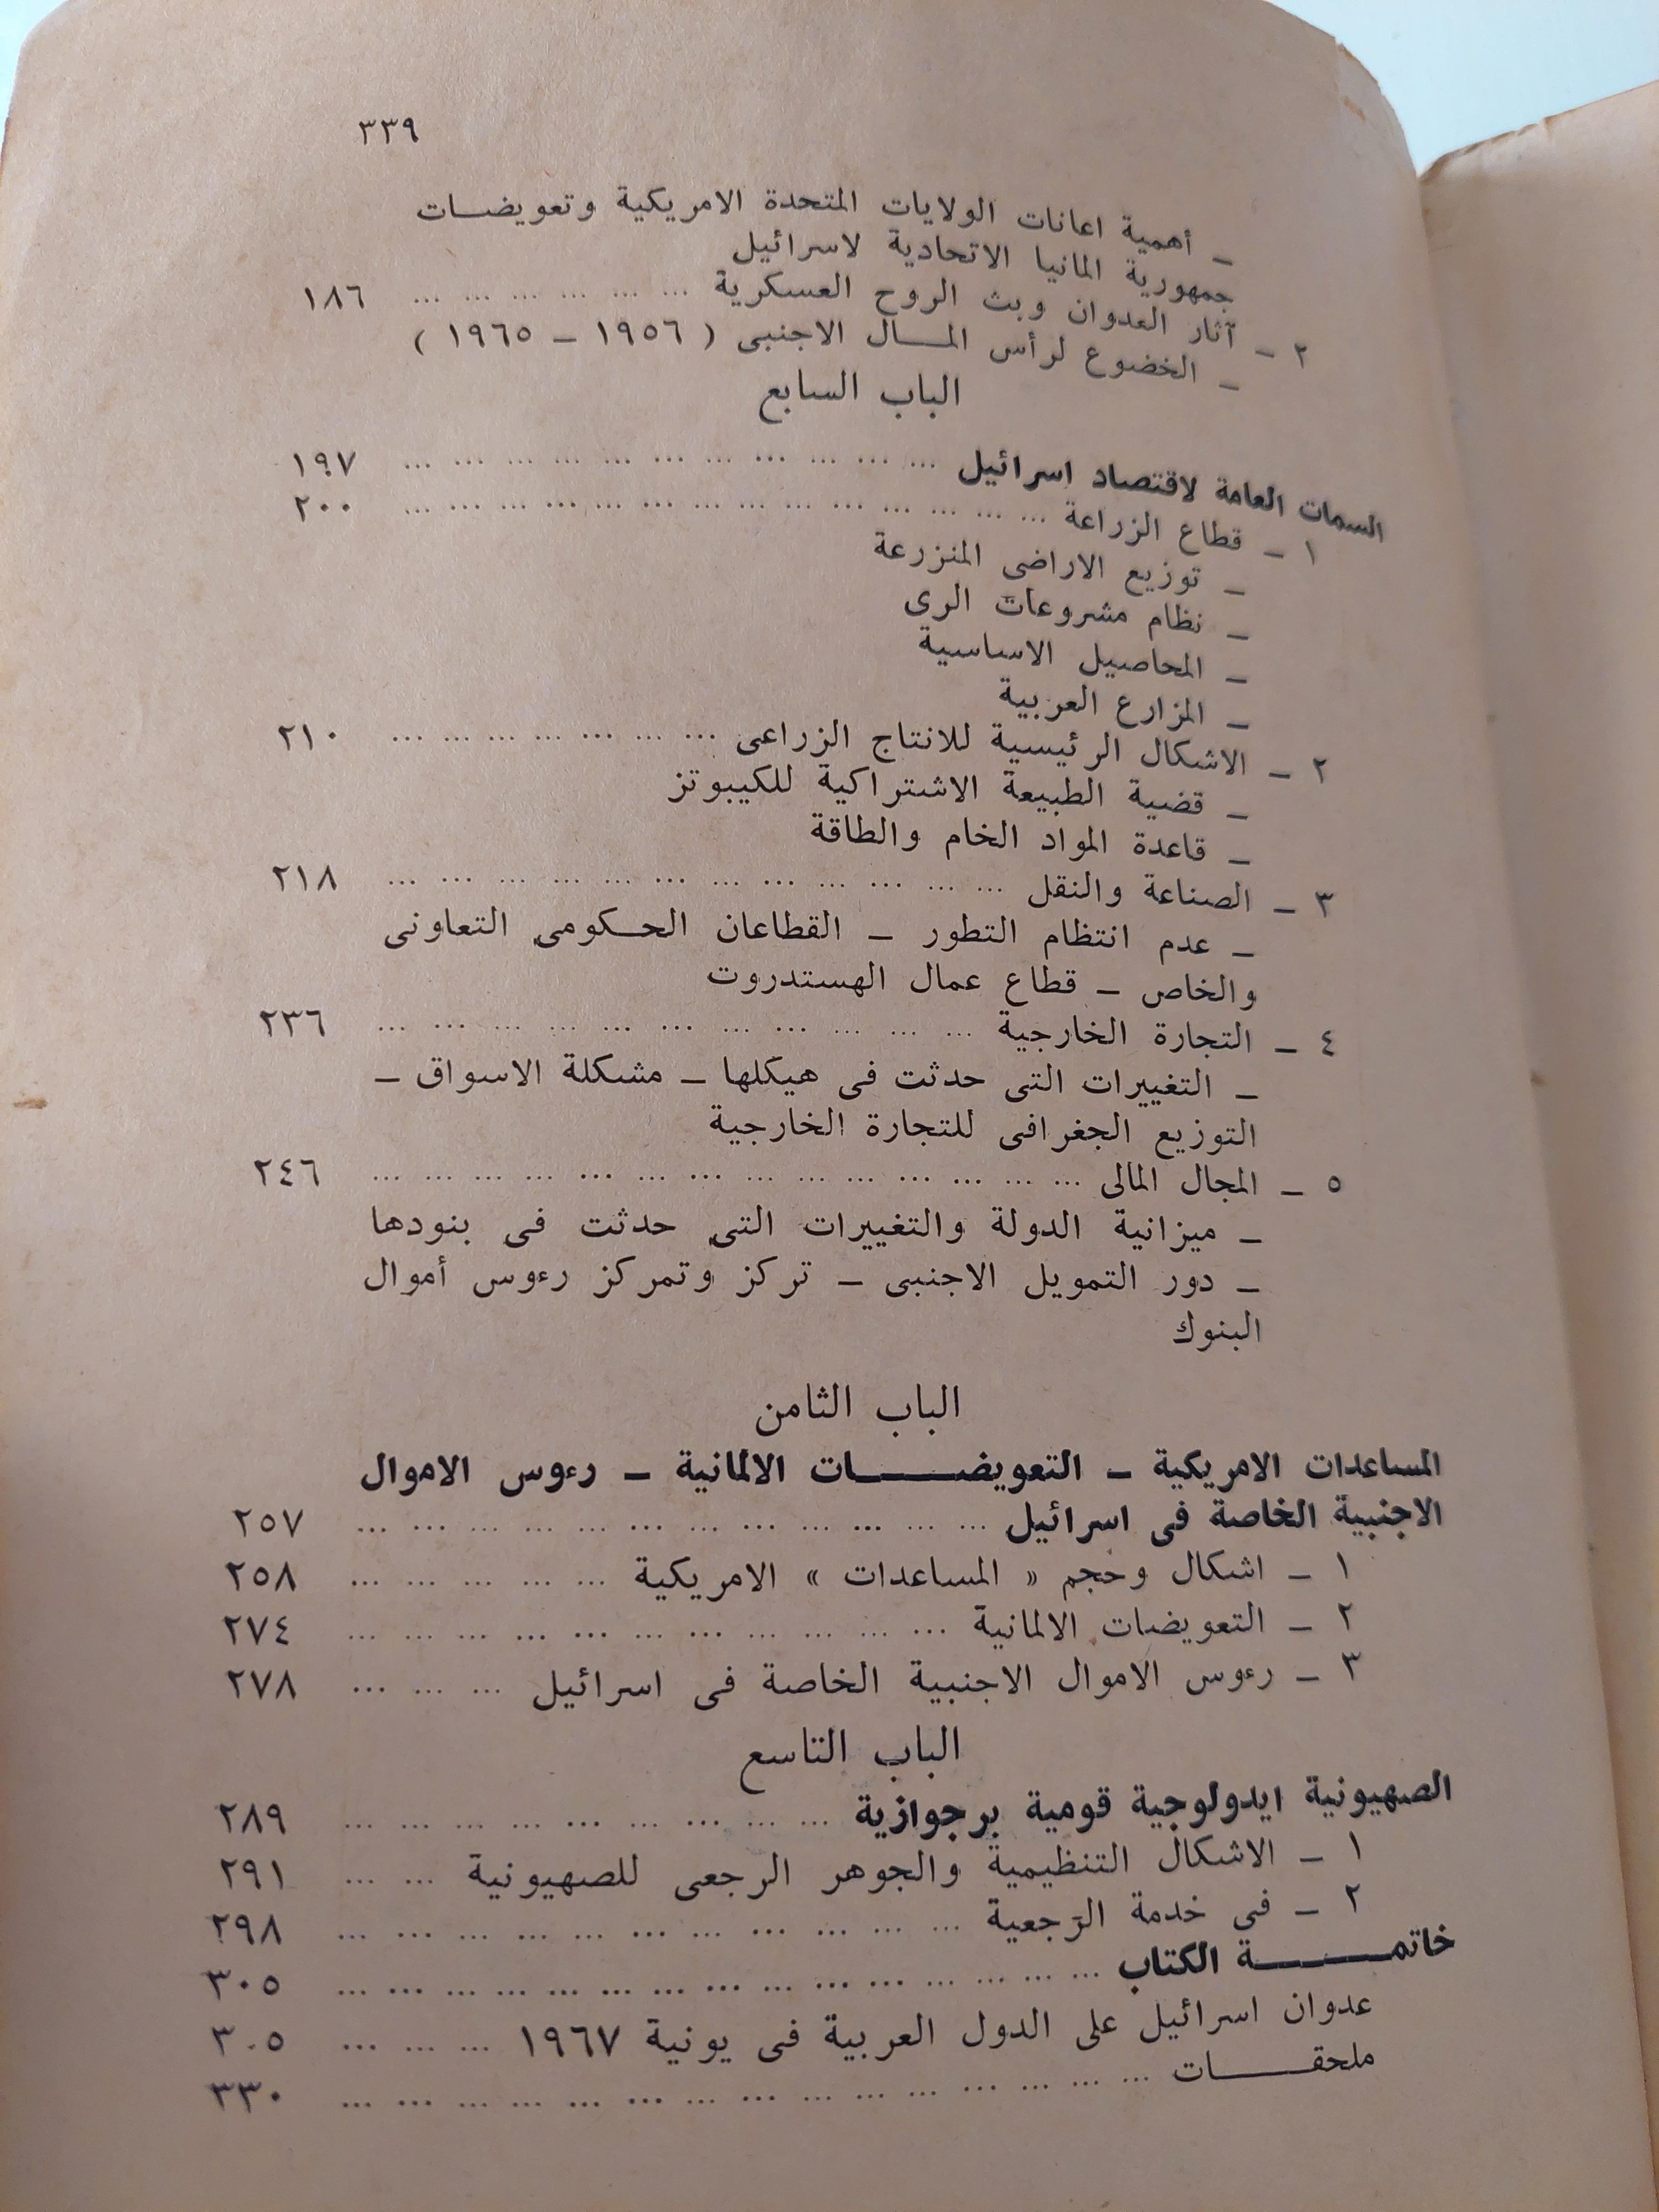 ٣٣٩
ـ أهمية اعانات الولايات المتحدة الامريكية وتعويضات
جمهورية المانيا الاتحادية لاسرائيل
٢ ـ آثار العدوان وبث الروح العسكرية ... ... ... ... ... ... ١٨٦
ـ الخضوع لرأس المال الاجنبى ( ١٩٥٦ ـ ١٩٦٥ )
الباب السابع
السمات العامة لاقتصاد اسرائيل ... ... ... ... ... ... ... ... ... ... ... ١٩٧
١ ـ قطاع الزراعة ... ... ... ... ... ... ... ... ... ... ... ... ... ٢٠٠
ـ توزيع الاراضى المنزرعة
ـ نظام مشروعات الرى
ـ المحاصيل الاساسية
ـ المزارع العربية
٢ ـ الاشكال الرئيسية للانتاج الزراعى ... ... ... ... ... ... ... ٢١٠
ـ قضية الطبيعة الاشتراكية للكيبوتز
ـ قاعدة المواد الخام والطاقة
٣ ـ الصناعة والنقل ... ... ... ... ... ... ... ... ... ... ... ... ٢١٨
ـ عدم انتظام التطور ـ القطاعان الحكومى التعاونى
والخاص ـ قطاع عمال الهستدروت
٤ ـ التجارة الخارجية ... ... ... ... ... ... ... ... ... ... ... ٢٣٦
ـ التغييرات التى حدثت فى هيكلها ـ مشكلة الاسواق ـ
التوزيع الجغرافى للتجارة الخارجية
٥ ـ المجال المالى ... ... ... ... ... ... ... ... ... ... ... ... ... ... ٢٤٦
ـ ميزانية الدولة والتغييرات التى حدثت فى بنودها
ـ دور التمويل الاجنبى ـ تركز وتمركز رءوس أموال
البنوك
الباب الثامن
المساعدات الامريكية ـ التعويضات الالمانية ـ رءوس الاموال
الاجنبية الخاصة فى اسرائيل ... ... ... ... ... ... ... ... ... ... ... ... ٢٥٧
١ ـ اشكال وحجم « المساعدات » الامريكية ... ... ... ... ... ٢٥٨
٢ ـ التعويضات الالمانية ... ... ... ... ... ... ... ... ... ... ... ٢٧٤
٣ ـ رءوس الاموال الاجنبية الخاصة فى اسرائيل ... ... ... ٢٧٨
الباب التاسع
الصهيونية ايدولوجية قومية برجوازية ... ... ... ... ... ... ... ... ... ٢٨٩
١ ـ الاشكال التنظيمية والجوهر الرجعى للصهيونية ... ... ٢٩١
٢ ـ فى خدمة الرجعية ... ... ... ... ... ... ... ... ... ... ... ٢٩٨
خاتمة الكتاب ... ... ... ... ... ... ... ... ... ... ... ... ... ... ٣٠٥
عدوان اسرائيل على الدول العربية فى يونية ١٩٦٧ ... ... ... ٣٠٥
ملحقات ... ... ... ... ... ... ... ... ... ... ... ... ... ... ... ٣٣٠